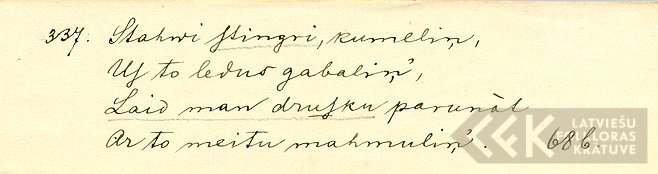 337. Stahwi stingri, kumeliņ,
Uf to ledus gabaliņ',
Laid man drusku parunàt
Ar to meitu mahmuliņ'. 686.
LATVIEŠU
FOLKLORAS
KRĀTUVE